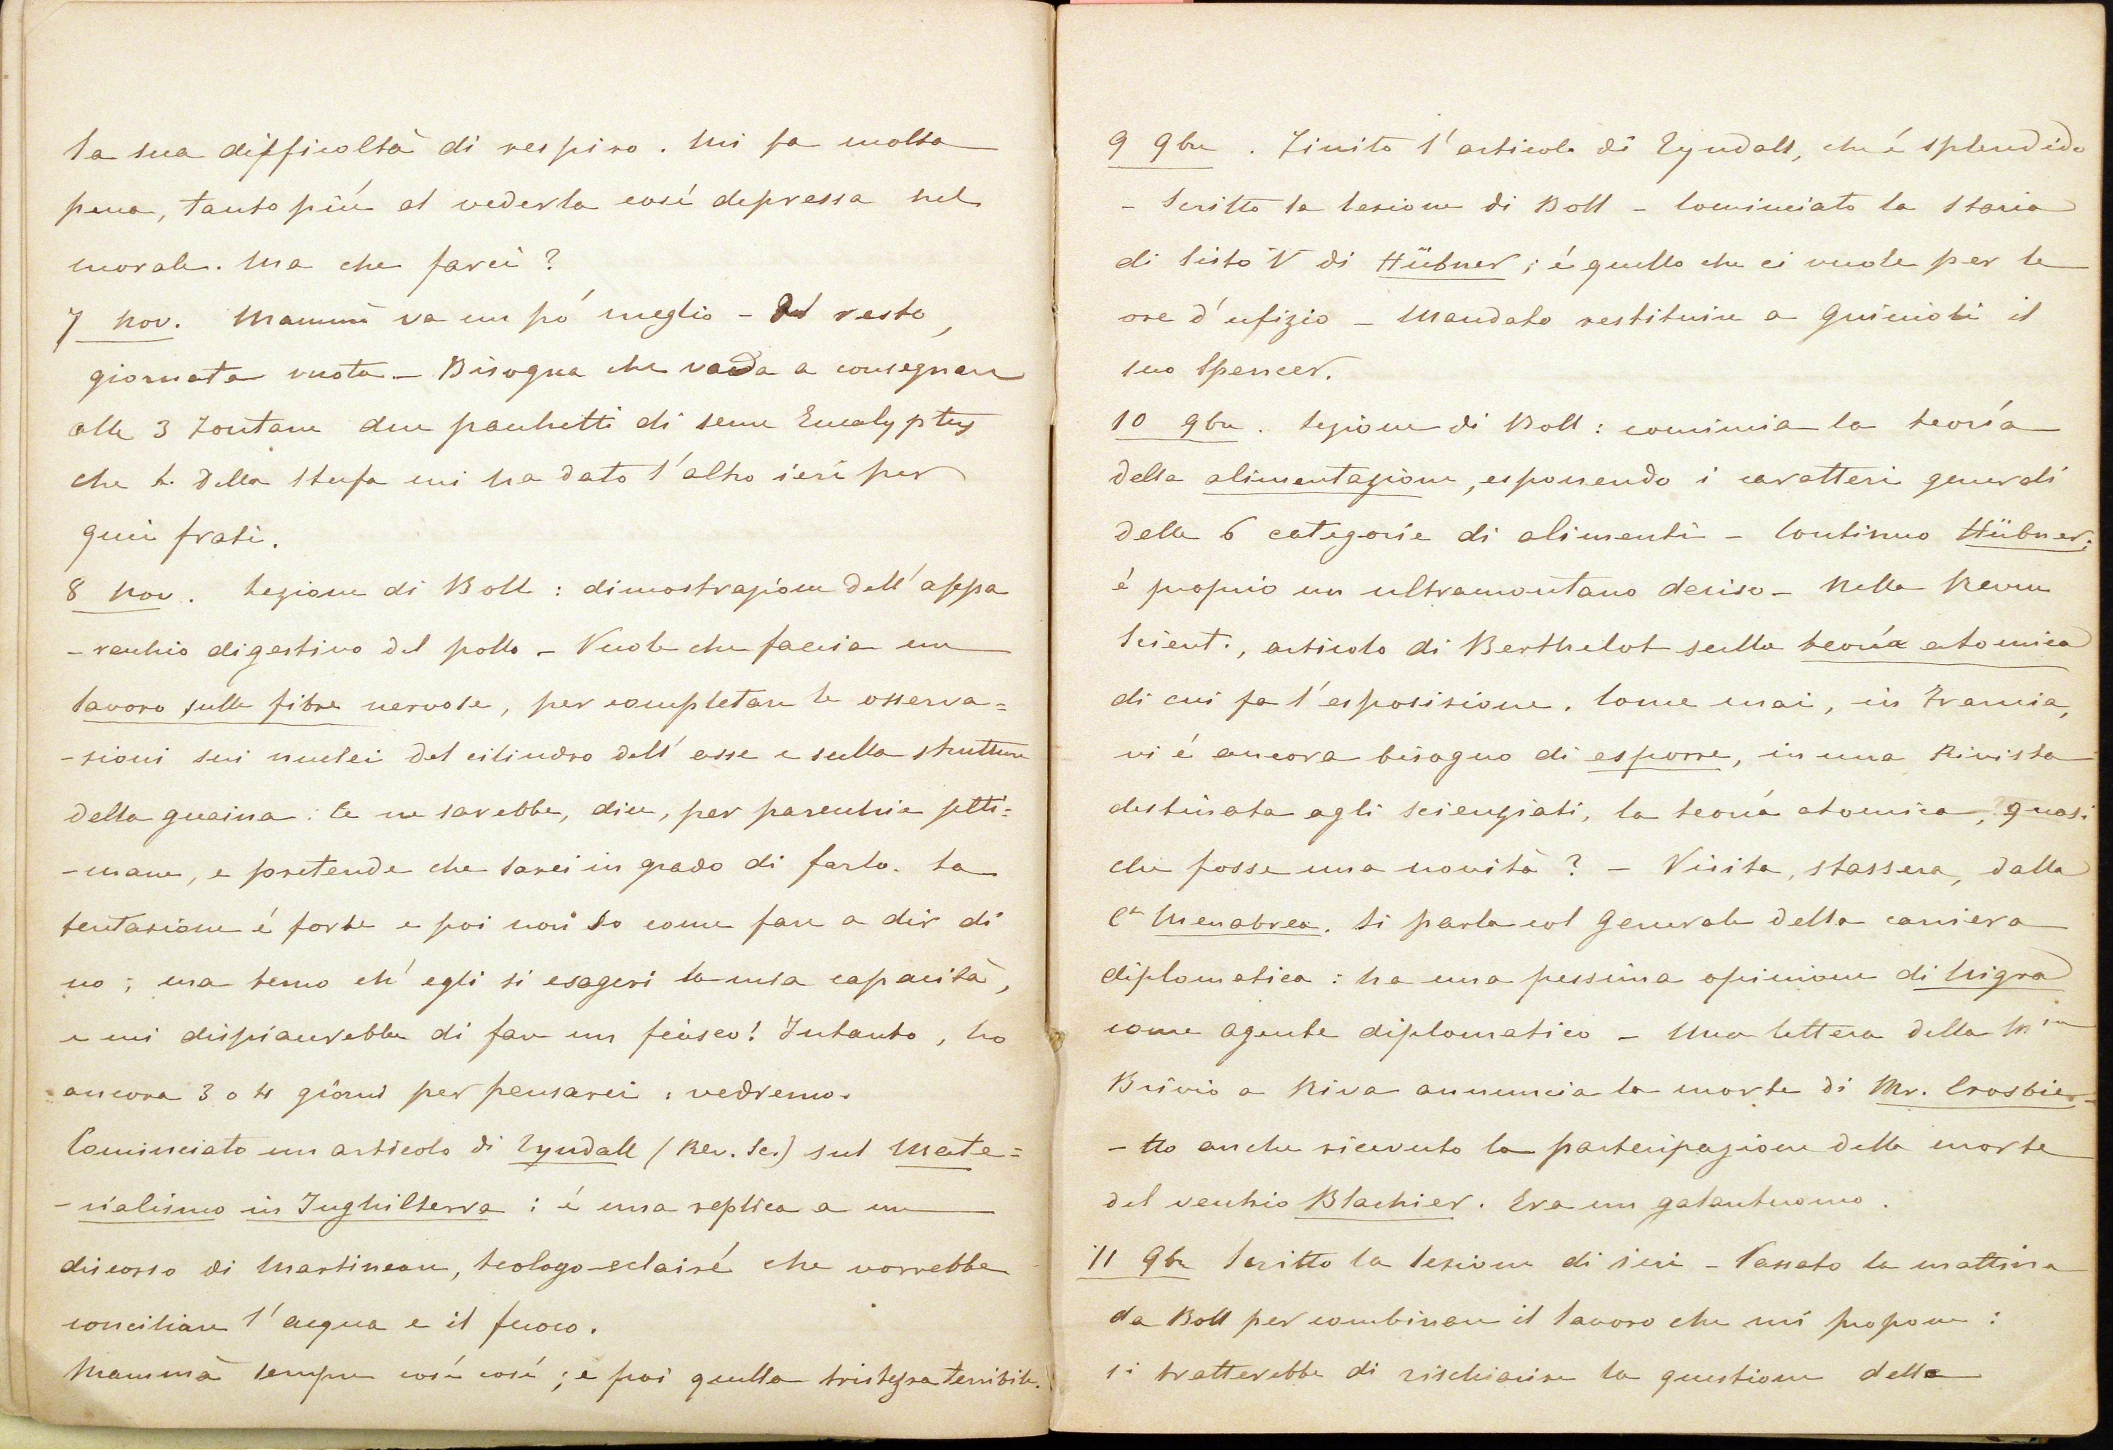 la sua difficoltà di respiro. Mi fa molta
pena, tanto più al vederla così depressa nel
morale. Ma che farci?
7 Nov. Mammà va un pó meglio - Del resto,
giornata vuota - Bisogna che vada a consegnare
alle 3 Fontane due pacchetti di seme Eucalyptus
che della Stufa mi ha dato l'altro ieri per
quei frati.
8 Nov. Lezione di Boll : dimostrazione dell'appa
-recchio digestivo del pollo - Vuole che faccia un
lavoro sulle fibre nervose, per completare le osserva=
-zioni sui nuclei del cilindro dell'asse e sulla struttura
della guaina : Ce ne sarebbe, dice, per parecchie setti=
-mane, e pretende che sarei in grado di farlo. La
tentazione é forte e poi non so come fare a dir di
no ; ma temo ch'egli si esageri la mia capacità,
e mi dispiacerebbe di fare un fiasco! Intanto, ho
ancora 3 o 4 giorni per pensarci : vedremo.
Cominciato un articolo di Tyndall (Rev. Sc.) sul Mate=
-rialismo in Inghilterra : é una replica a un
discorso di Martineau, teologo-éclairé che vorrebbe
conciliare l'acqua e il fuoco.
Mammà sempre cosí cosí ; e poi quella tristezza terribile.
9 9bre . Finito l'articolo di Tyndall, che é splendido
- Scritto la lezione di Boll - Cominciato la storia
di Sisto V di Hübner ; é quello che ci vuole per le
ore d'ufizio - Mandato restituire a Guicioli il
suo Spencer.
10 9bre . Lezione di Boll : comincia la teoría
della alimentazione, esponendo i caratteri generali
delle 6 categorie di alimenti - Continuo Hübner;
é proprio un ultramontano deciso - Nella Revue
Scient., articolo di Berthelot sulla teoría atomica
di cui fa l'esposizione. Come mai, in Francia,
vi é ancora bisogno di esporre, in una Rivista
destinata agli scienziati, la teoría atomica, quasi
che fosse una novità ? - Visita, stassera, dalla
Csa Menabrea. Si parla col Generale della carriera
diplomatica : ha una pessima opinione di Nigra
come agente diplomatico - Una lettera della
Brivio a Riva annuncia la morte di Mr. Crosbie -
- Ho anche ricevuto la partecipazione della morte
del vecchio Blachier. Era un galantuomo.
11 9bre Scritto la lezione di ieri - Passato la mattina
da Boll per combinare il lavoro che mi propone :
si tratterebbe di rischiarire la questione della